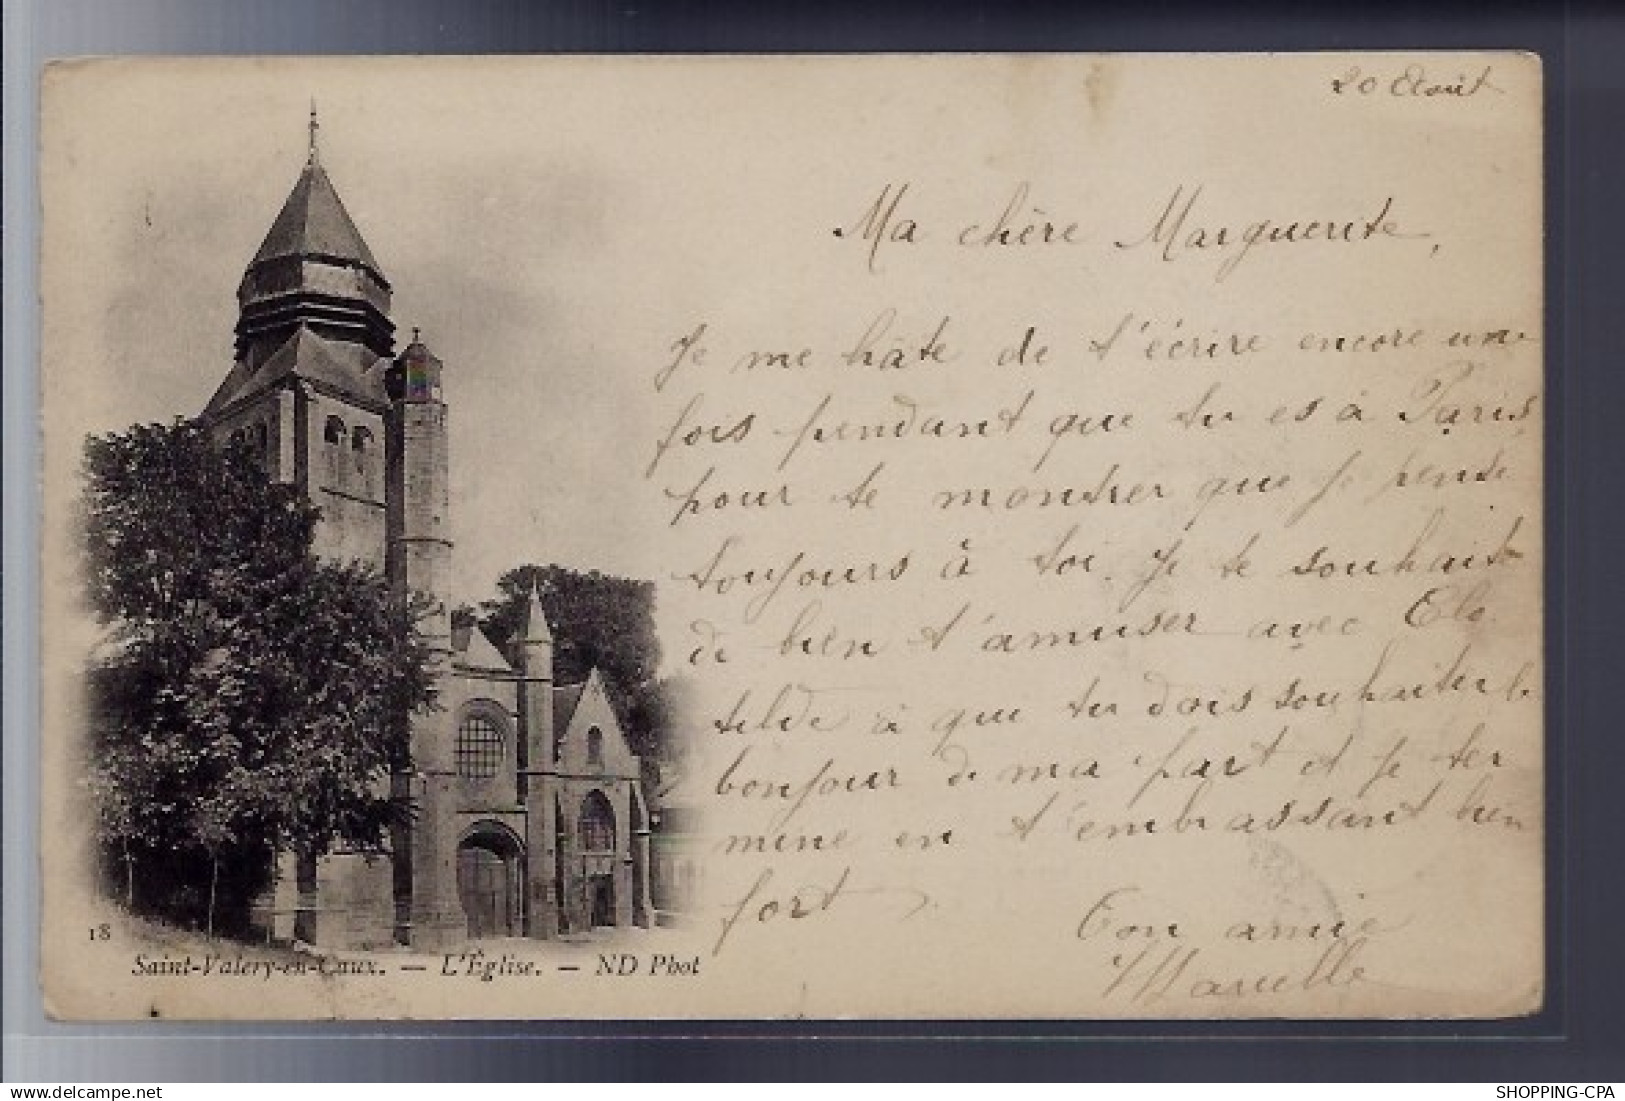 20 Août
Ma chère Marguerite,
Je me hâte de t'écrire encore une
fois pendant que tu es à Paris
pour te montrer que je pense
toujours à toi. Je te souhaite
de bien t'amuser avec Clo
tilde à qui tu dois souhaiter le
bonjour de ma part et je ter
mine en t'embrassant bien
fort
Ton amie
Marcelle
18
Saint-Valery-en-Caux. — L'Église. — ND Phot
SHOPPING-CPA